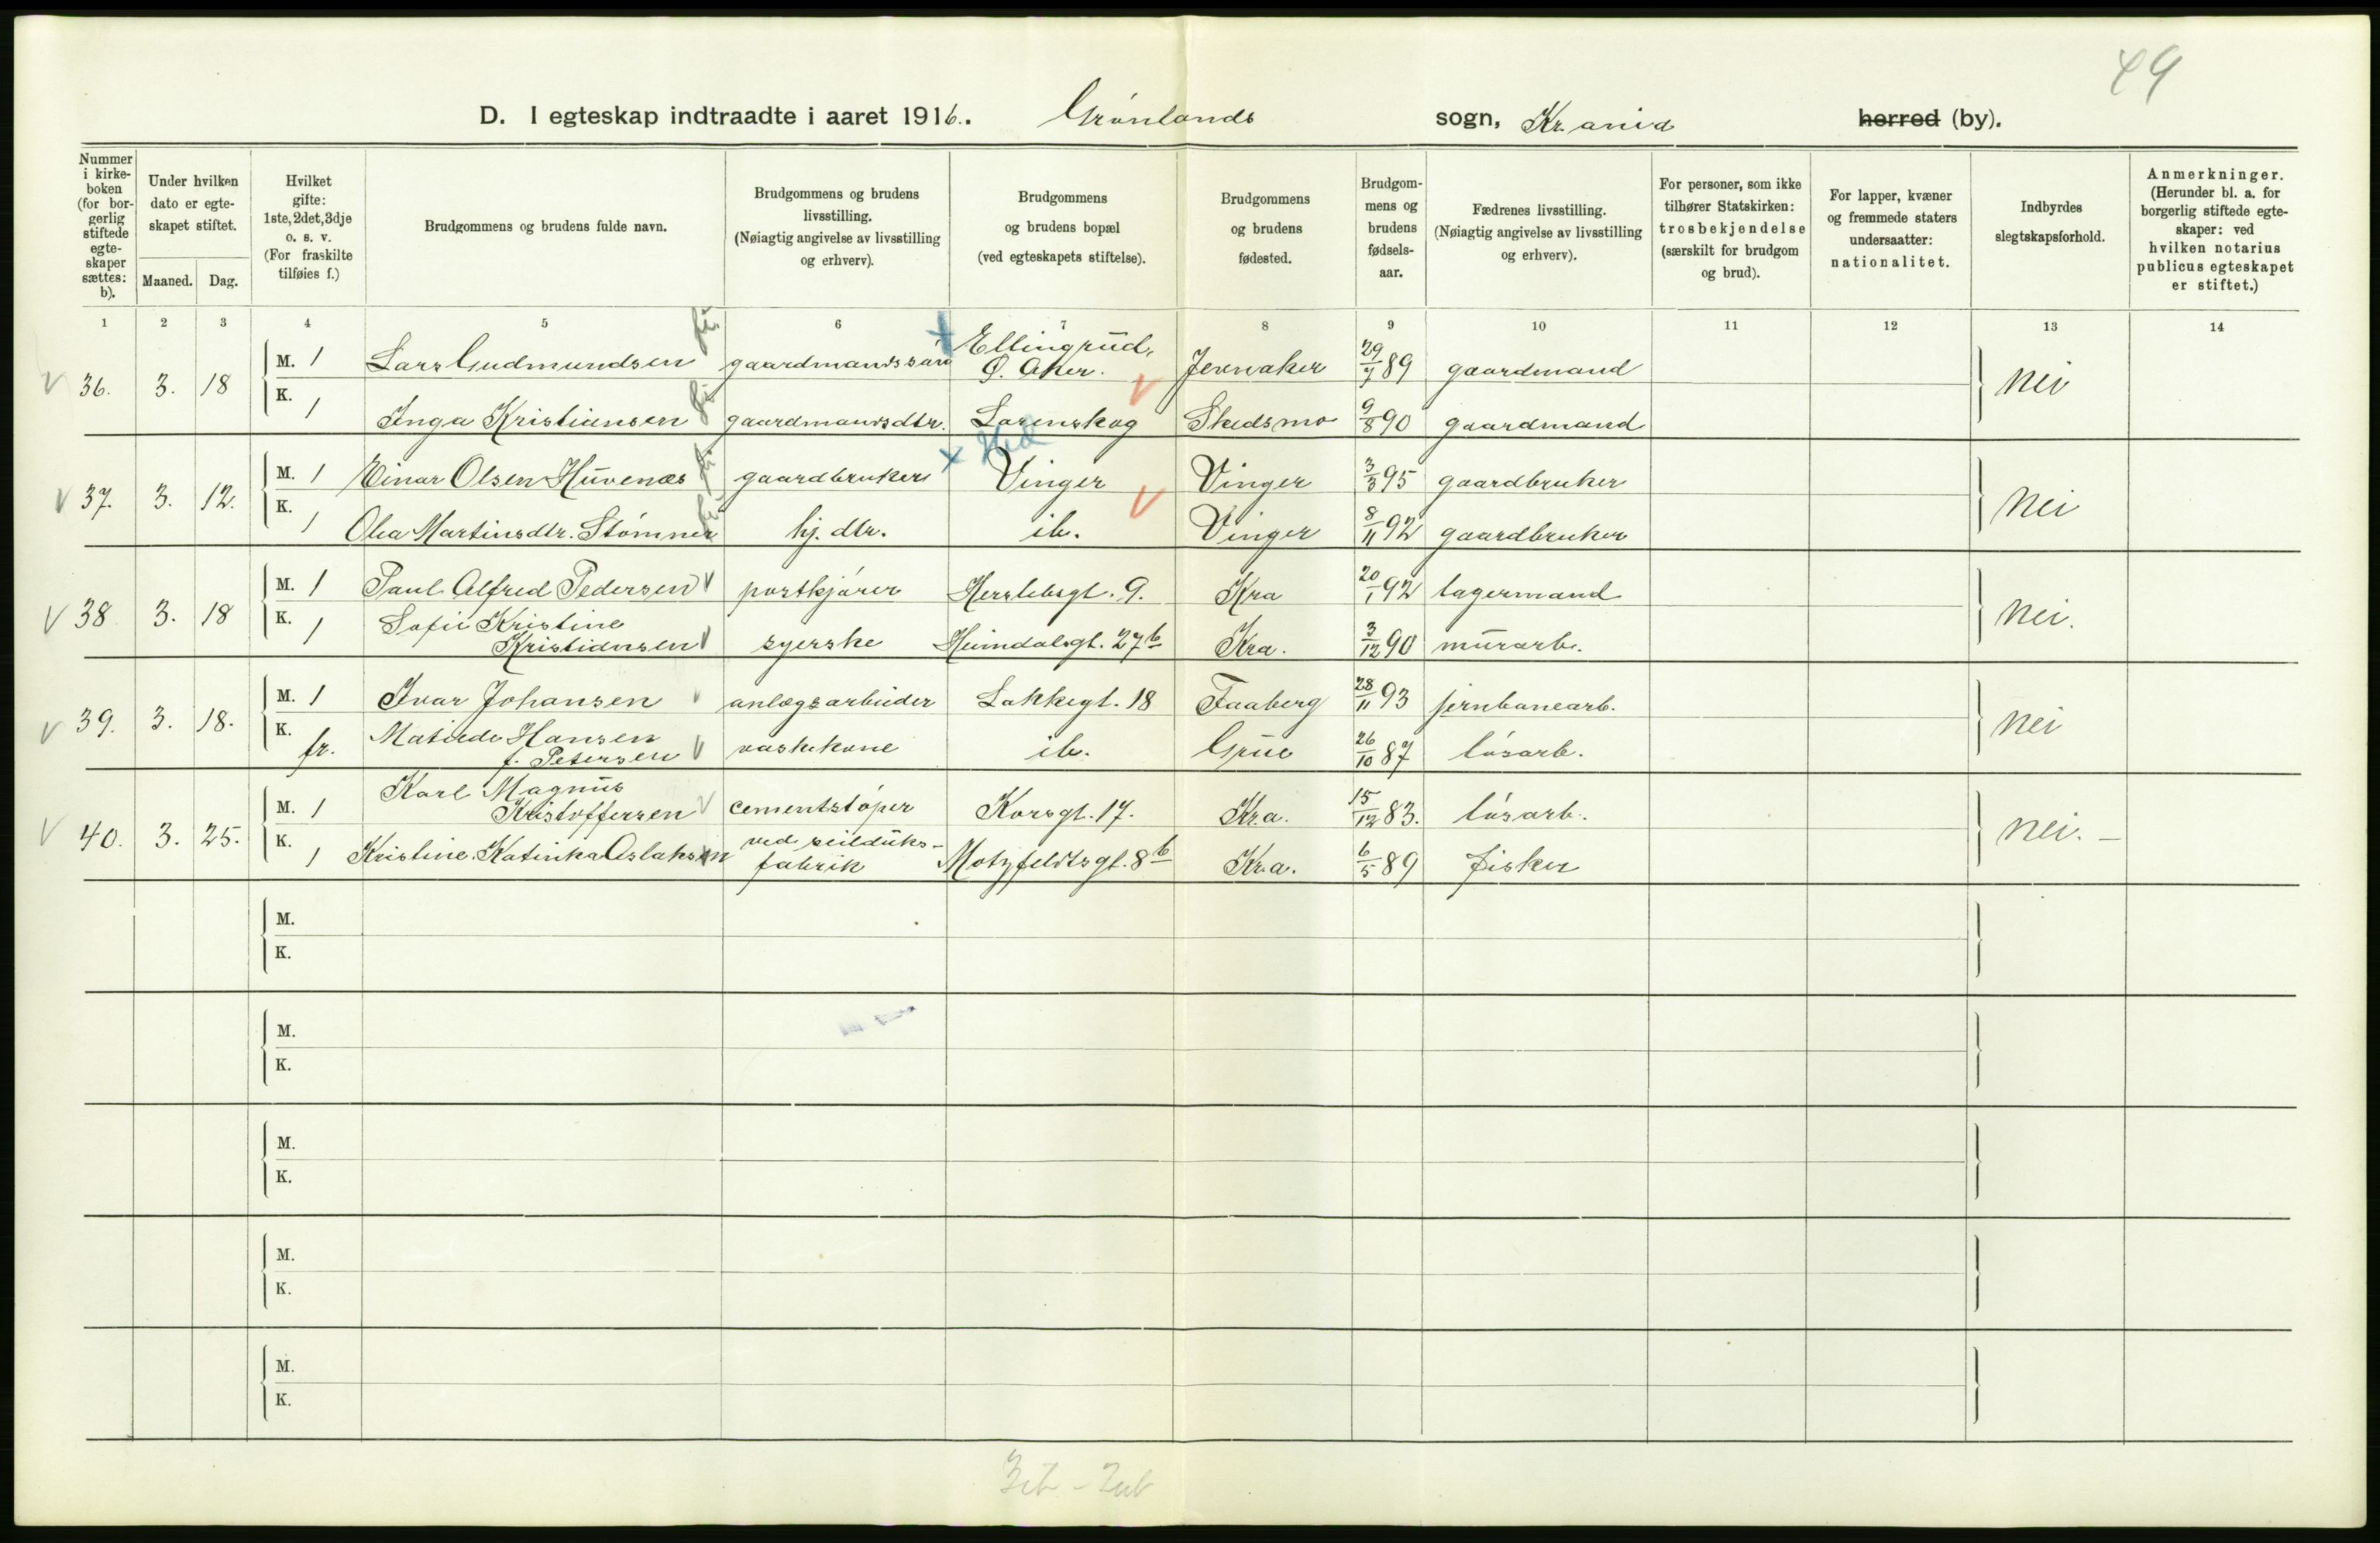 49
D. I egteskap indtraadte i aaret 1916. Grønlands sogn, Kr.ania herred (by).
Nummer i kirkeboken (for borgerlig stiftede egteskaper sættes: b).
Under hvilken dato er egteskapet stiftet.
Maaned. Dag.
Hvilket gifte: 1ste, 2det, 3dje o. s. v. (For fraskilte tilføies f.)
Brudgommens og brudens fulde navn.
Brudgommens og brudens livsstilling. (Nøiagtig angivelse av livsstilling og erhverv).
Brudgommens og brudens bopæl (ved egteskapets stiftelse).
Brudgommens og brudens fødested.
Brudgommens og brudens fødselsaar.
Fædrenes livsstilling. (Nøiagtig angivelse av livsstilling og erhverv).
For personer, som ikke tilhører Statskirken: trosbekjendelse (særskilt for brudgom og brud).
For lapper, kvæner og fremmede staters undersaatter: nationalitet.
Indbyrdes slegtskapsforhold.
Anmerkninger. (Herunder bl. a. for borgerlig stiftede egteskaper: ved hvilken notarius publicus egteskapet er stiftet.)
1 2 3 4 5 6 7 8 9 10 11 12 13 14
36. 3. 18 M. 1 Lars Gudmundsen gaardmandssøn Ellingrud, Ø. Aker. Jevnaker 29/7 89 gaardmand nei
K. 1 Inga Kristiansen gaardmandsdtr. Lørenskog Skedsmo 9/8 90 gaardmand
37. 3. 12. M. 1 Einar Olsen Huvenæs gaardbruker Vinger Vinger 3/3 95 gaardbruker nei
K. 1 Olea Martinsdtr. Stømner hj. dtr. ib. Vinger 8/11 92 gaardbruker
38 3. 18 M. 1 Paul Alfred Pedersen postkjører Herslebsgt. 9. Kra 20/1 92 lagermand nei.
K. 1 Sofie Kristine Kristiansen syerske Heimdalsgt. 27b Kra. 3/12 90 murarb.
39. 3. 18. M. 1 Ivar Johansen anlægsarbeider Lakkegt. 18 Faaberg 28/11 93 jernbanearb. nei
K. fr. Matilde Hansen f. Petersen vaskekone ib. Grue 26/10 87 løsarb.
40. 3. 25. M. 1 Karl Magnus Kristoffersen cementstøper Korsgt. 17. Kr.a. 15/12 83. løsarb. nei. –
K. 1 Kristine Katinka Aslaksen ved seilduks-fabrik Motzfeldtsgt. 8b Kr.a. 6/5 89 fisker
M.
K.
M.
K.
M.
K.
M.
K.
M.
K.